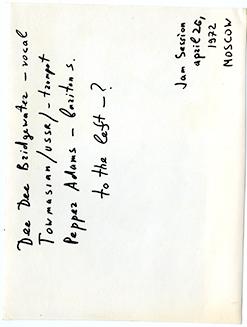 Dee Dee Bridgewater – vocal
Towmasian /USSR/ – trompet
Pepper Adams – bariton s.
to the left – ?
Jam Session
april 26,
1972
MOSCOW